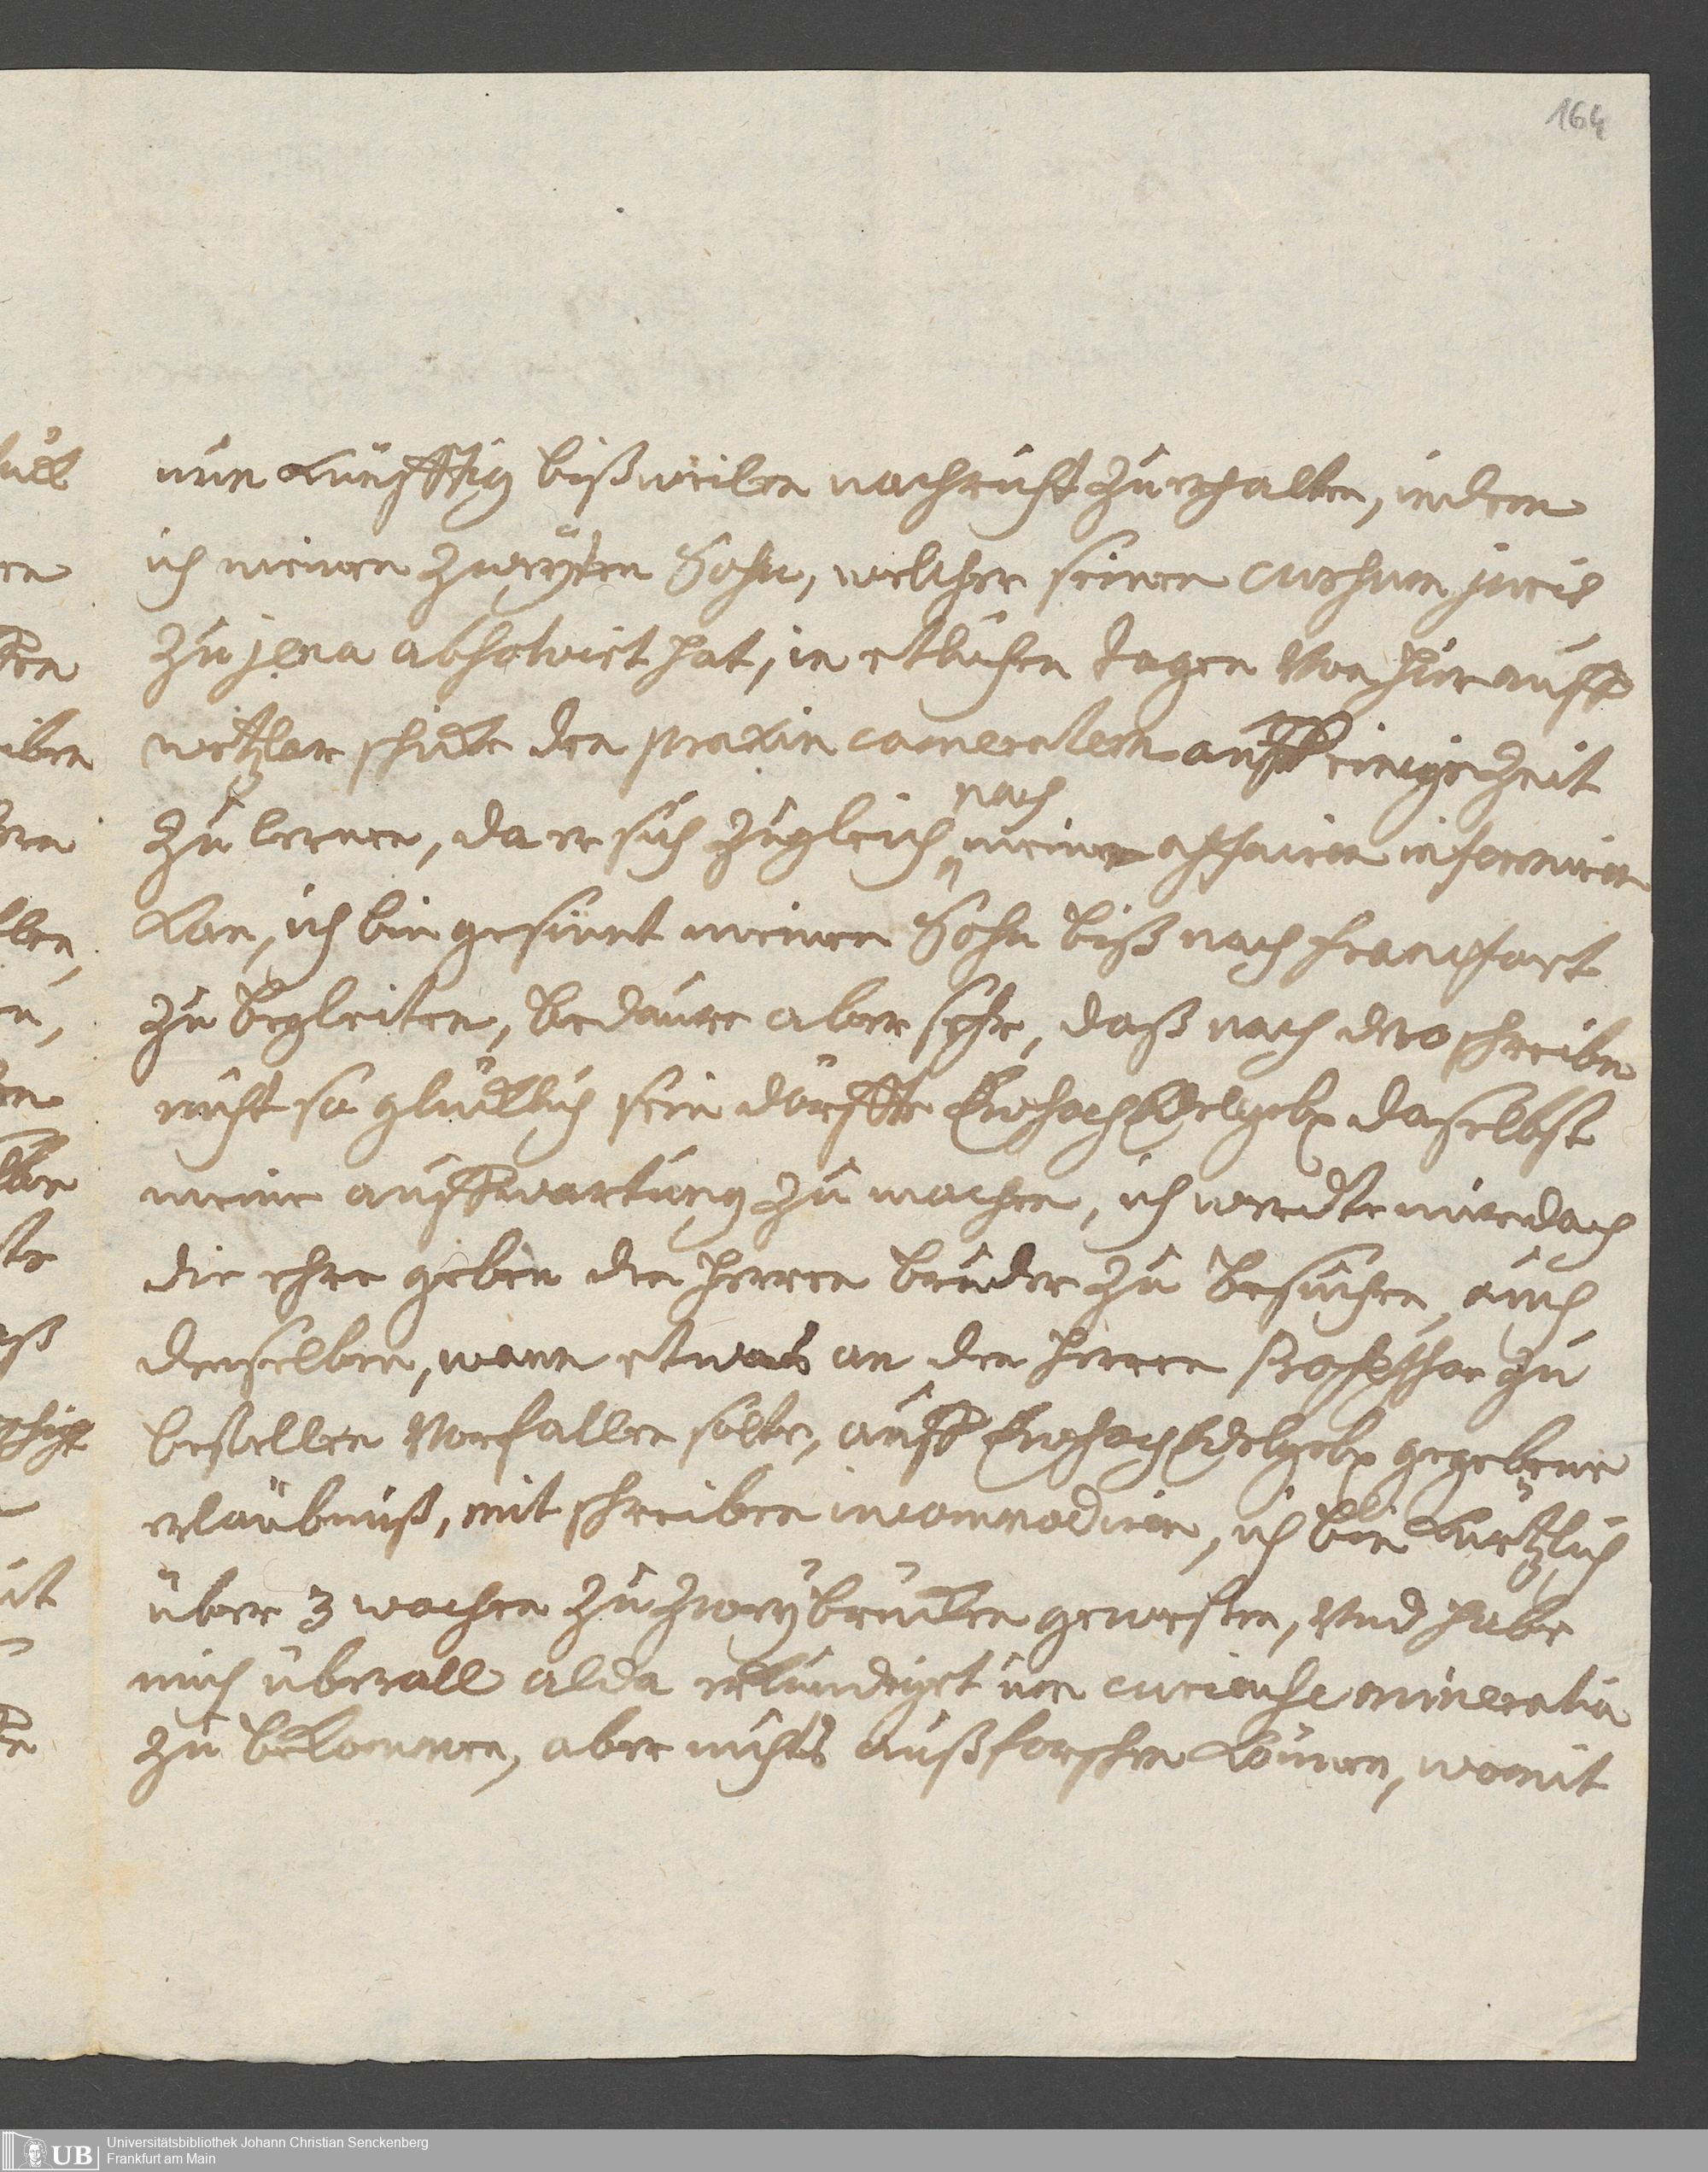 164
nun Künfftig bißweilen nachricht zu erhalten, indem
ich meinen zweÿten Sohn, welcher seinen cursum juris
zu jena absolvirt hat, in etlichen tagen Von hier auff
wetzlar schicke den praxin cameralem auff einige Zeit
zu lernen, da er sich zugleich nach meiner affairen informiren
Kan, ich bin gesinnt meinen Sohn biß nach franckfort
zu begleiten, bedaure aber sehr, daß nach dero schreiben
nicht so glücklich sein dörffte Ew hoch Edelgeb daselbst
meine auffwartung zu machen, ich werdte mir doch
die ehre geben den herren bruder zu besuchen, auch
denselben, wann etwas an den herren Professor zu
bestellen Vorfallen solte, auff Ew hoch Edelgeb gegebene
erlaubnuß, mit schreiben incommodiren, ich bin Kürtzlich
über 3 wochen zu Zweÿbrücken gewesen, Und habe
mich überall alda erkundiget um curieuse mineralia
zu bekommen, aber nichts außforschen Können, womit
UB
Universitätsbibliothek Johann Christian Senckenberg
Frankfurt am Main